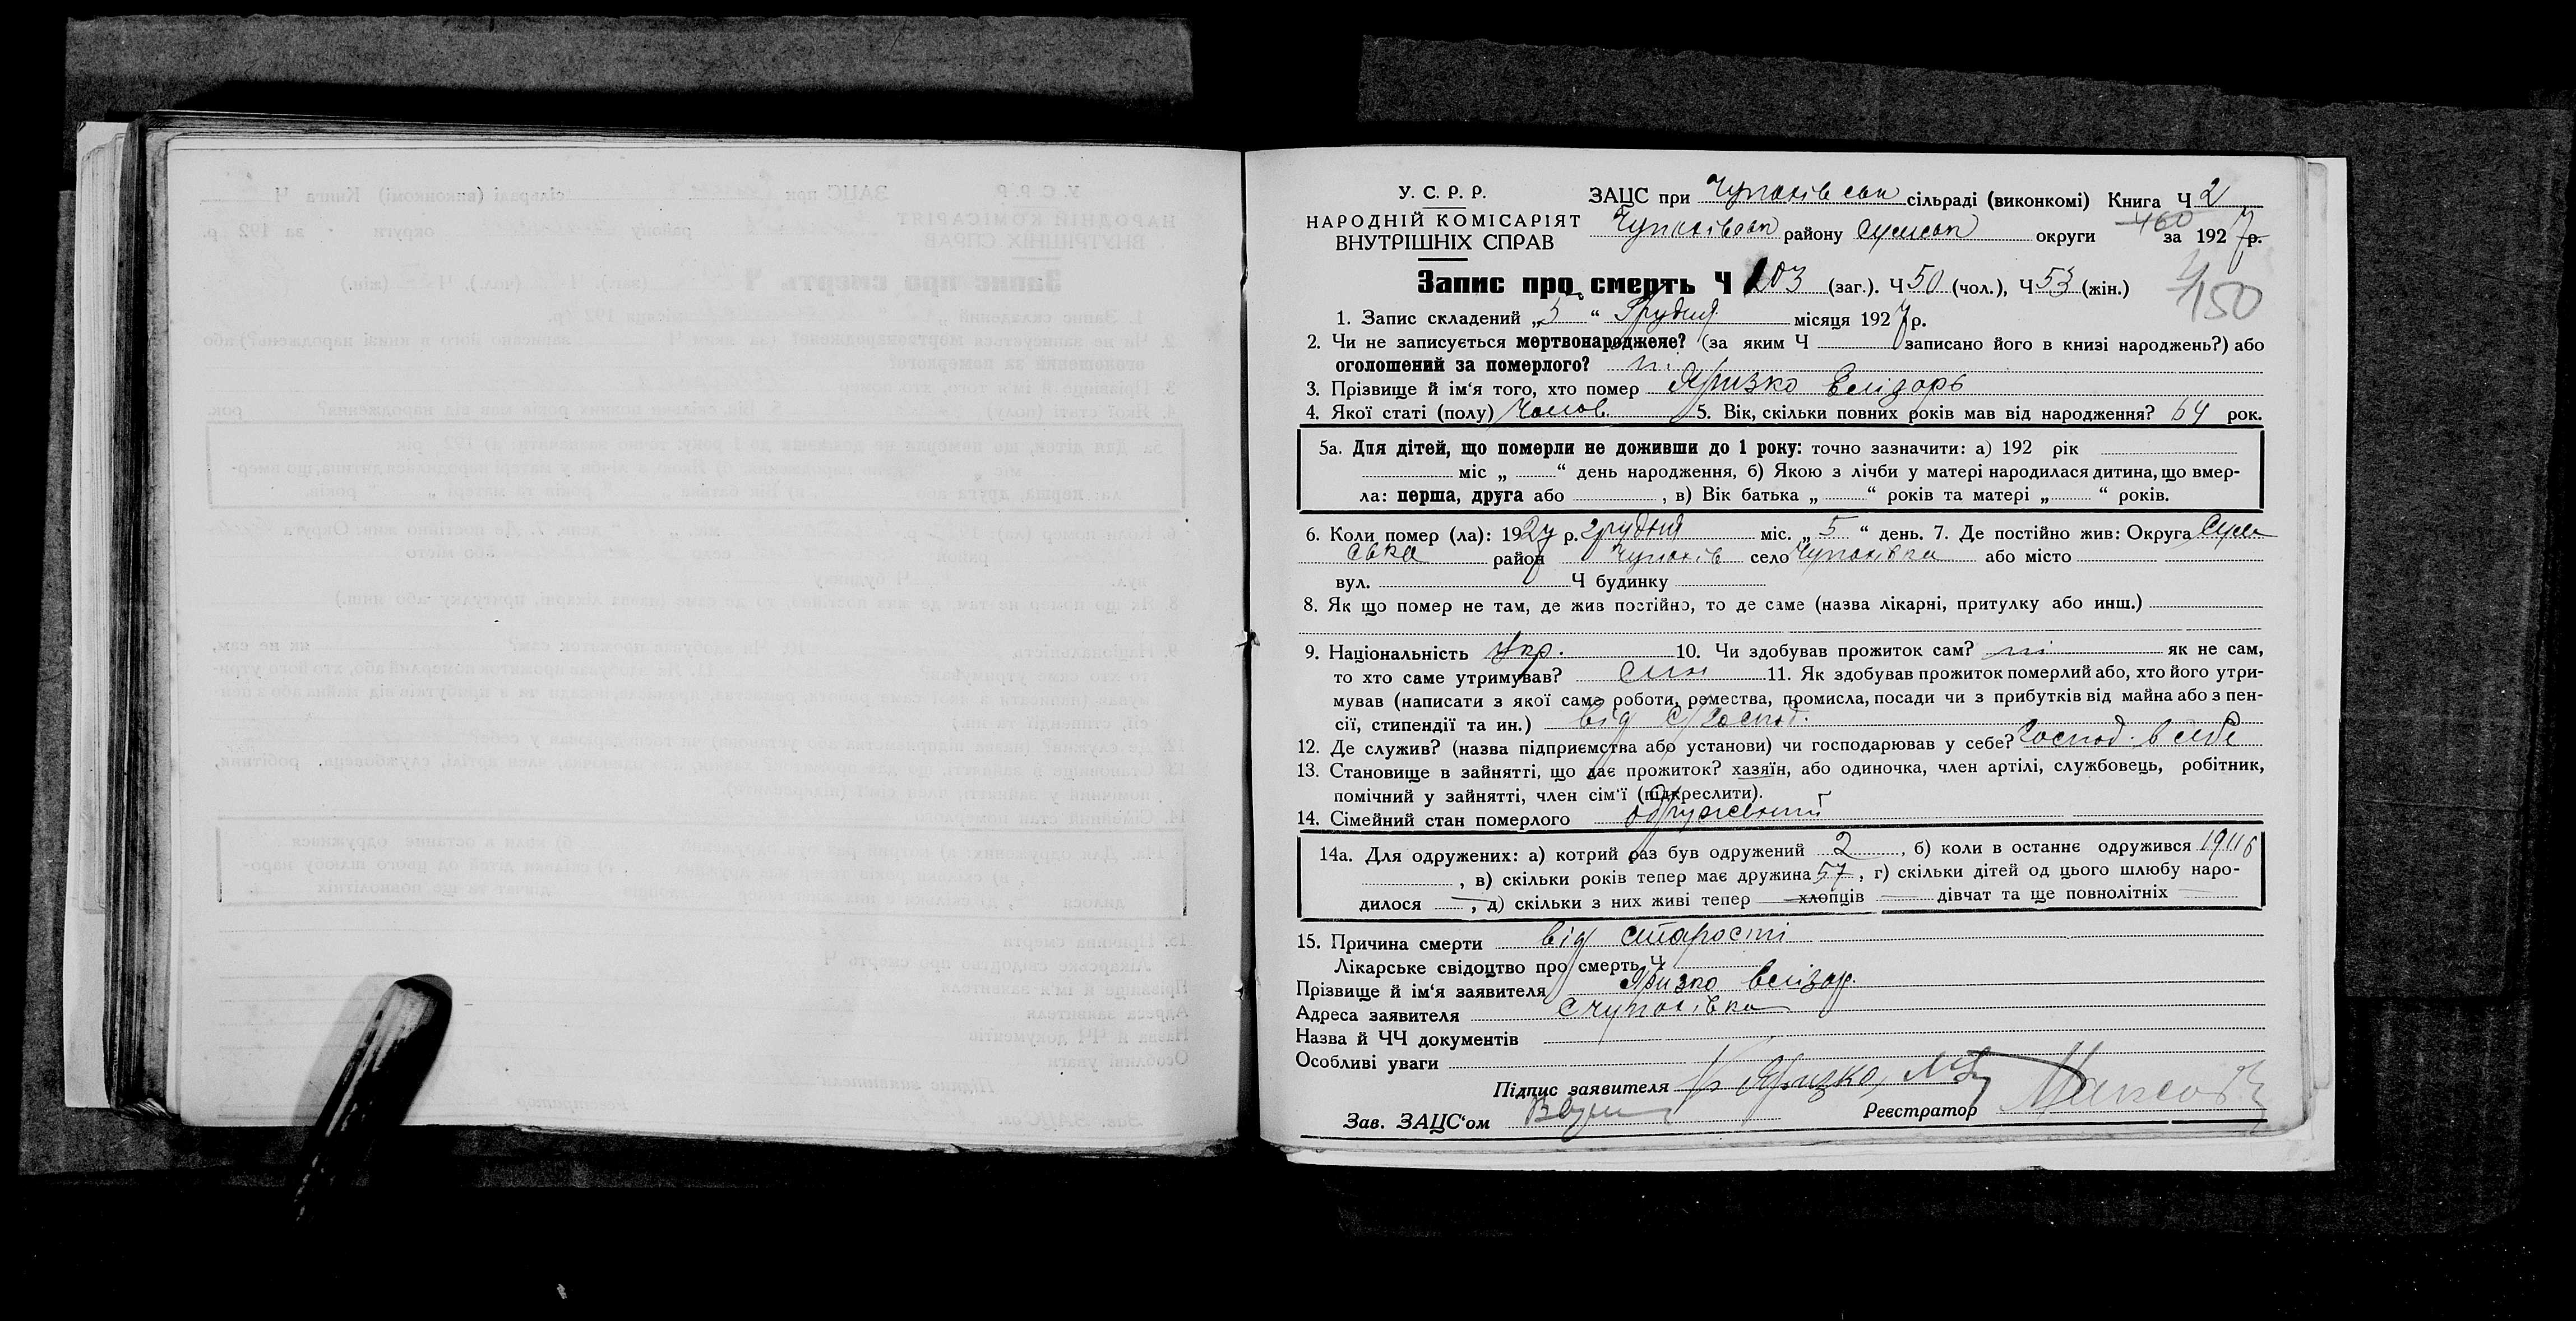 У. С. Р. Р.
НАРОДНІЙ КОМІСАРІЯТ
ВНУТРІШНІХ СПРАВ
ЗАЦС при Чупахівськ сільраді (виконкомі) Книга Ч 2
Чупахівськ району Сумськ округи 460 за 1927 р.
Запис про смерть Ч 103 (заг.). Ч 50 (чол.), Ч 53 (жін.)
150
1. Запис складений „5“ Грудня місяця 1927 р.
2. Чи не записується мертвонароджене? (за яким Ч записано його в книзі народжень?) або
оголошений за померлого? н.
3. Прізвище й ім‘я того, хто помер Яризко Єлізарь
4. Якої статі (полу) Чолов. 5. Вік, скільки повних років мав від народження? 64 рок.
5а. Для дітей, що померли не доживши до 1 року: точно зазначити: а) 192 рік
міс „ “ день народження, б) Якою з лічби у матері народилася дитина, що вмер-
ла: перша, друга або , в) Вік батька „ “ років та матері „ “ років.
6. Коли помер (ла): 1927 р. грудня міс. „5“ день. 7. Де постійно жив: Округа Сум
ська район Чупахів село Чупахівка або місто
вул. Ч будинку
8. Як що помер не там, де жив постійно, то де саме (назва лікарні, притулку або инш.)
9. Національність Укр. 10. Чи здобував прожиток сам? ні як не сам,
то хто саме утримував? син 11. Як здобував прожиток померлий або, хто його утри-
мував (написати з якої саме роботи, ремества, промисла, посади чи з прибутків від майна або з пен-
сії, стипендії та ин.) від с/господ.
12. Де служив? (назва підприємства або установи) чи господарював у себе? Господ. в себе
13. Становище в зайнятті, що дає прожиток? хазяїн, або одиночка, член артілі, службовець, робітник,
помічний у зайнятті, член сім‘ї (підкреслити).
14. Сімейний стан померлого одружений
14а. Для одружених: а) котрий раз був одружений 2, б) коли в останнє одружився
, в) скільки років тепер має дружина 57, г) скільки дітей од цього шлюбу наро-
дилося —, д) скільки з них живі тепер — хлопців — дівчат та ще повнолітніх —
15. Причина смерти від старости
Лікарське свідоцтво про смерть Ч
Прізвище й ім‘я заявителя Яризко Єлізар.
Адреса заявителя с Чупахівка
Назва й ЧЧ документів
Особливі уваги
Підпис заявителя Яризко
Зав. ЗАЦС‘ом Реєстратор